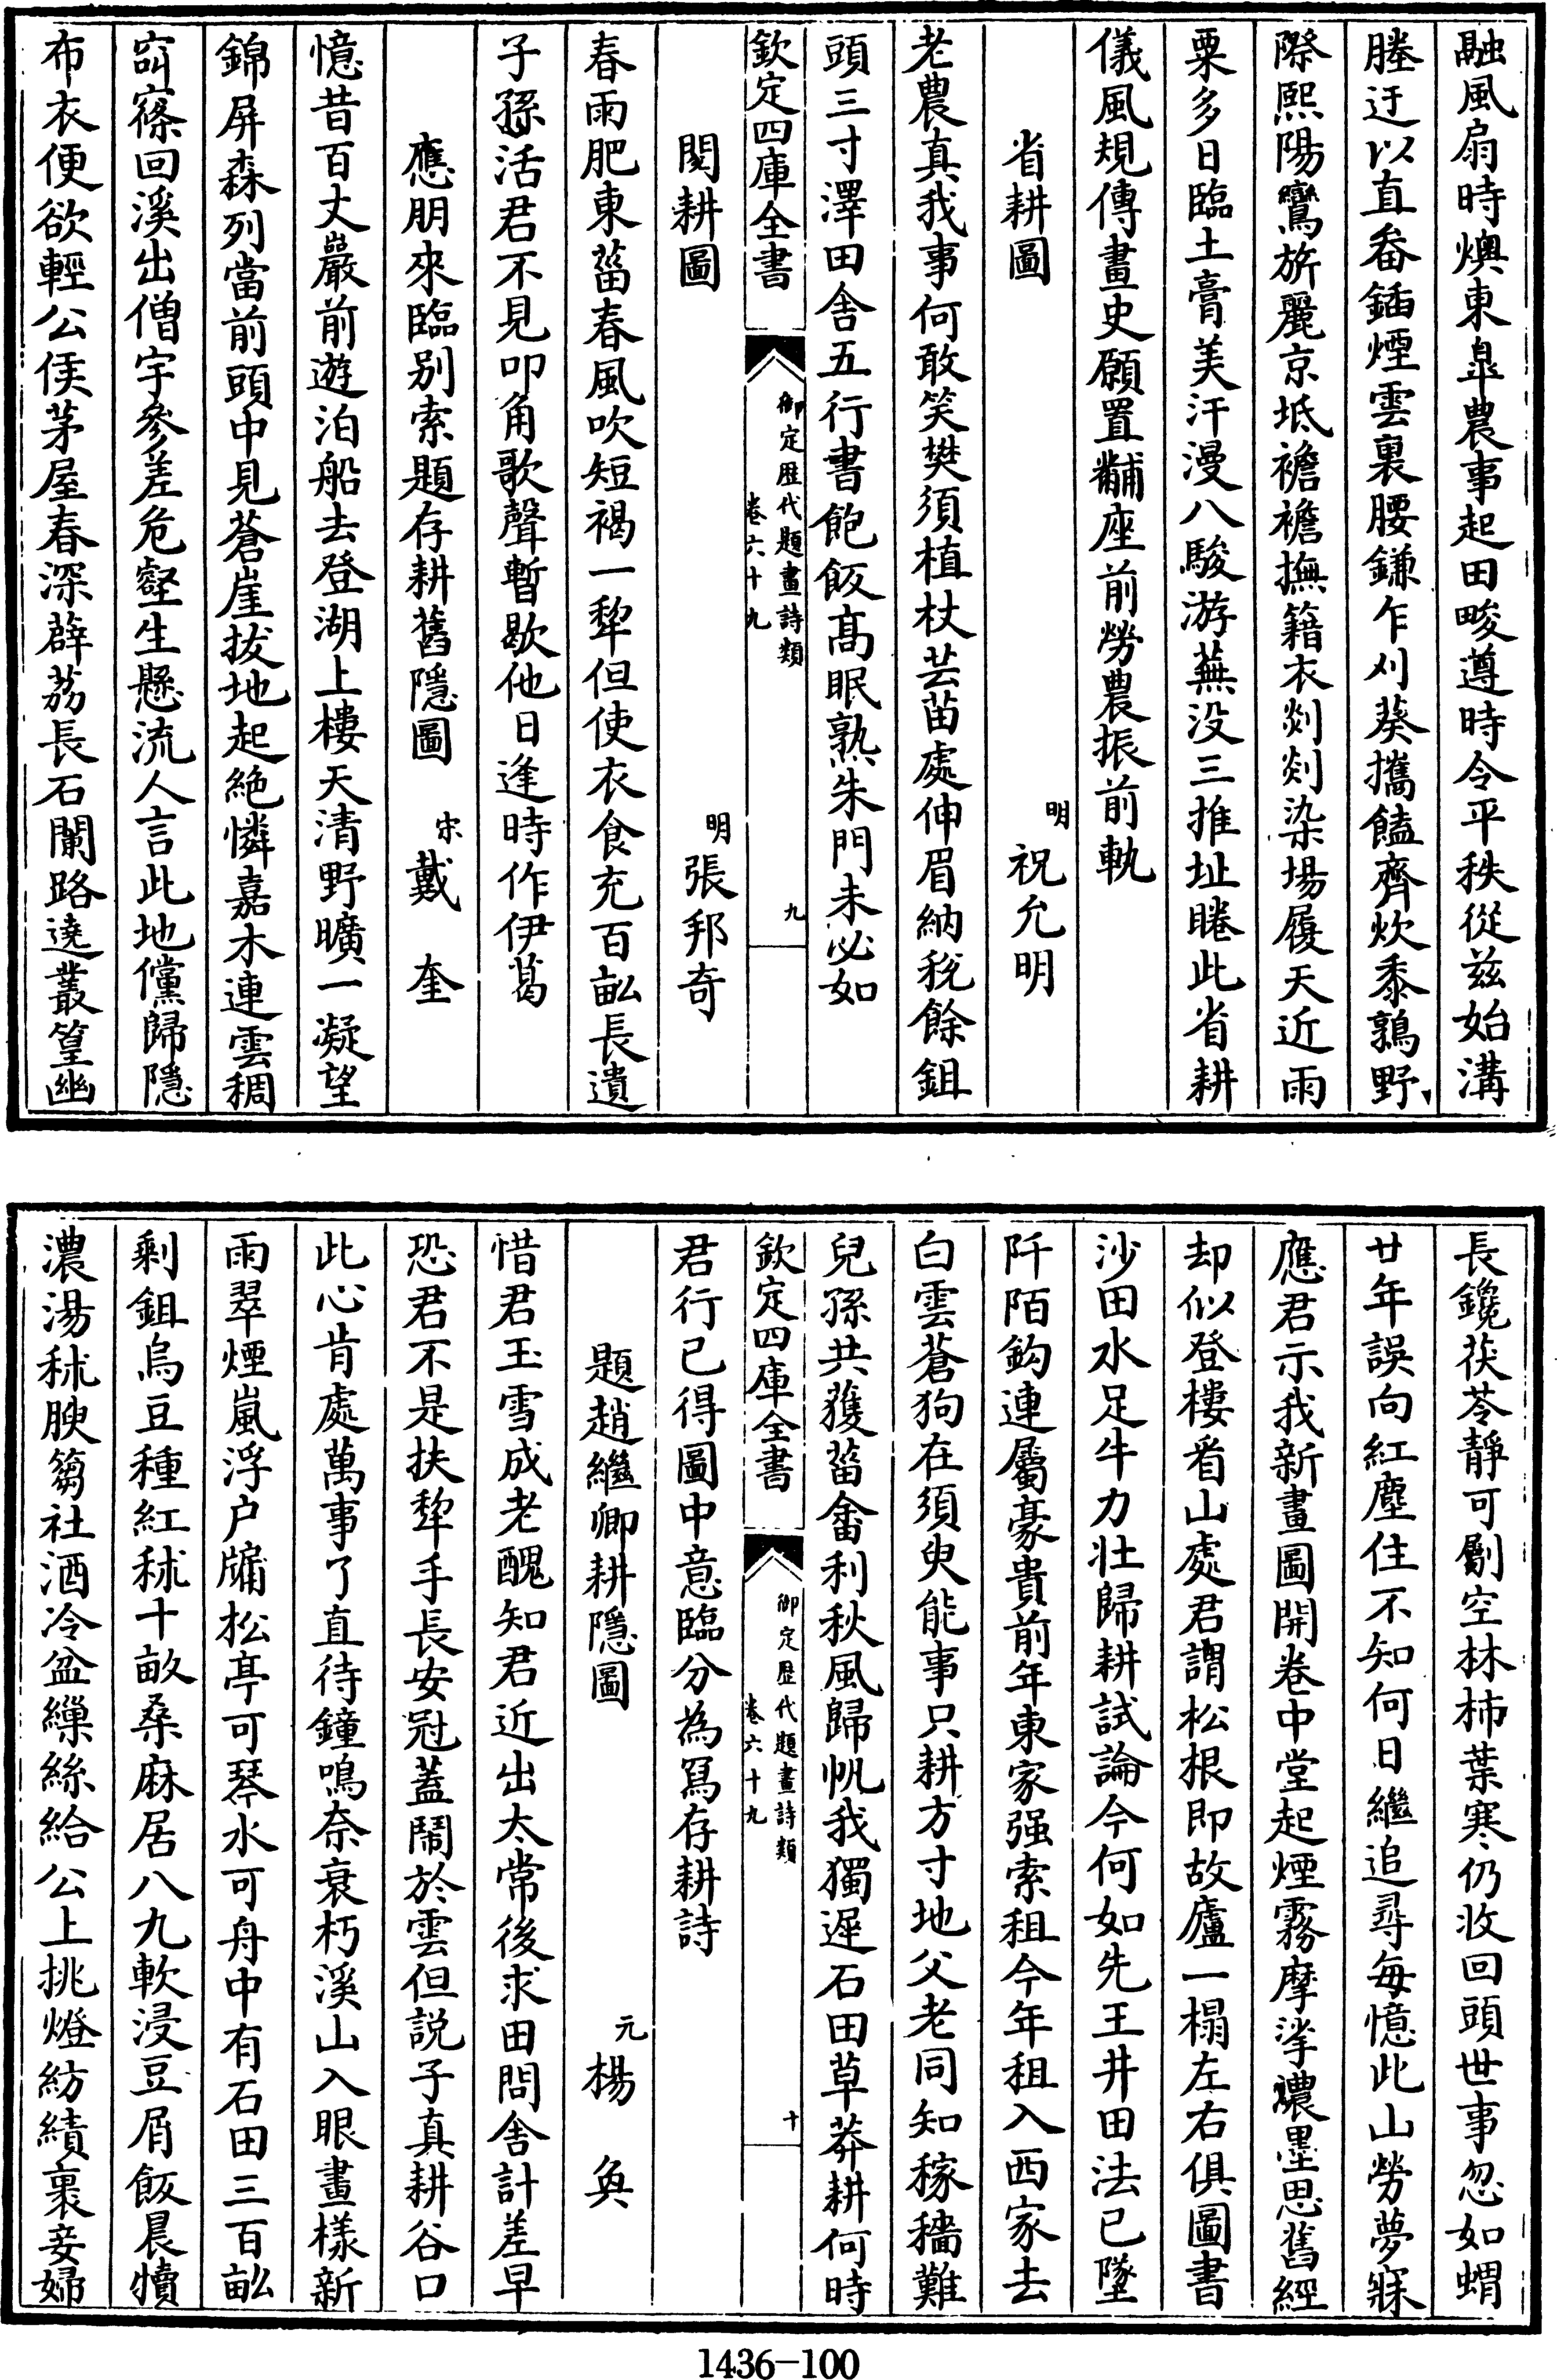 融風扇時燠東臯農事起田畯遵時令平秩從兹始溝
塍迂以直畚鍤煙雲裏腰鎌乍刈葵攜饁齊炊黍鶉野
際熙陽鸞旂麗京坻襜襜撫籍衣剡剡染場履天近雨
粟多日臨土膏美汗漫八駿游蕪没三推址睠此省耕
儀風規傳畫史願置黼座前勞農振前軌
省耕圖
明
祝允明
老農真我事何敢笑樊須植杖芸苗處伸眉納稅餘鉏
頭三寸澤田舍五行書飽飯髙眠熟朱門未必如
欽定四庫全書
御定歴代題畫詩類
卷六十九
九
閱耕圖
明
張邦奇
春雨肥東菑春風吹短褐一犂但使衣食充百畝長遺
子孫活君不見叩角歌聲暫歇他日逢時作伊葛
應朋來臨别索題存耕舊隱圖
宋
戴奎
憶昔百丈巖前遊泊船去登湖上樓天清野曠一凝望
錦屏森列當前頭中見蒼崖拔地起絶憐嘉木連雲稠
窅窱回溪出僧宇參差危磴生懸流人言此地儻歸隱
布衣便欲輕公侯茅屋春深薜荔長石闌路遶叢篁幽
長鑱茯苓靜可劚空林柿葉寒仍收回頭世事忽如蝟
廿年誤向紅塵住不知何日繼追尋每憶此山勞夢寐
應君示我新畫圖開卷中堂起煙霧摩挲濃墨思舊經
却似登樓看山處君謂松根即故廬一榻左右俱圖書
沙田水足牛力壯歸耕試論今何如先王井田法已墜
阡陌鈎連屬豪貴前年東家强索租今年租入西家去
白雲蒼狗在須臾能事只耕方寸地父老同知稼穡難
兒孫共獲菑畬利秋風歸帆我獨遲石田草莽耕何時
欽定四庫全書
御定歴代題畫詩類
卷六十九
十
君行已得圖中意臨分為寫存耕詩
題趙繼卿耕隱圖
元
楊奐
惜君玉雪成老醜知君近出太常後求田問舍計差早
恐君不是扶犂手長安冠蓋鬧於雲但説子真耕谷口
此心肯處萬事了直待鐘鳴奈衰朽溪山入眼畫樣新
雨翠煙嵐浮户牖松亭可琴水可舟中有石田三百畝
剩鉏烏豆種紅秫十畝桑麻居八九軟浸豆屑飯晨犢
濃湯秫腴篘社酒冷盆繅絲給公上挑燈紡績裹妾婦
1436-100